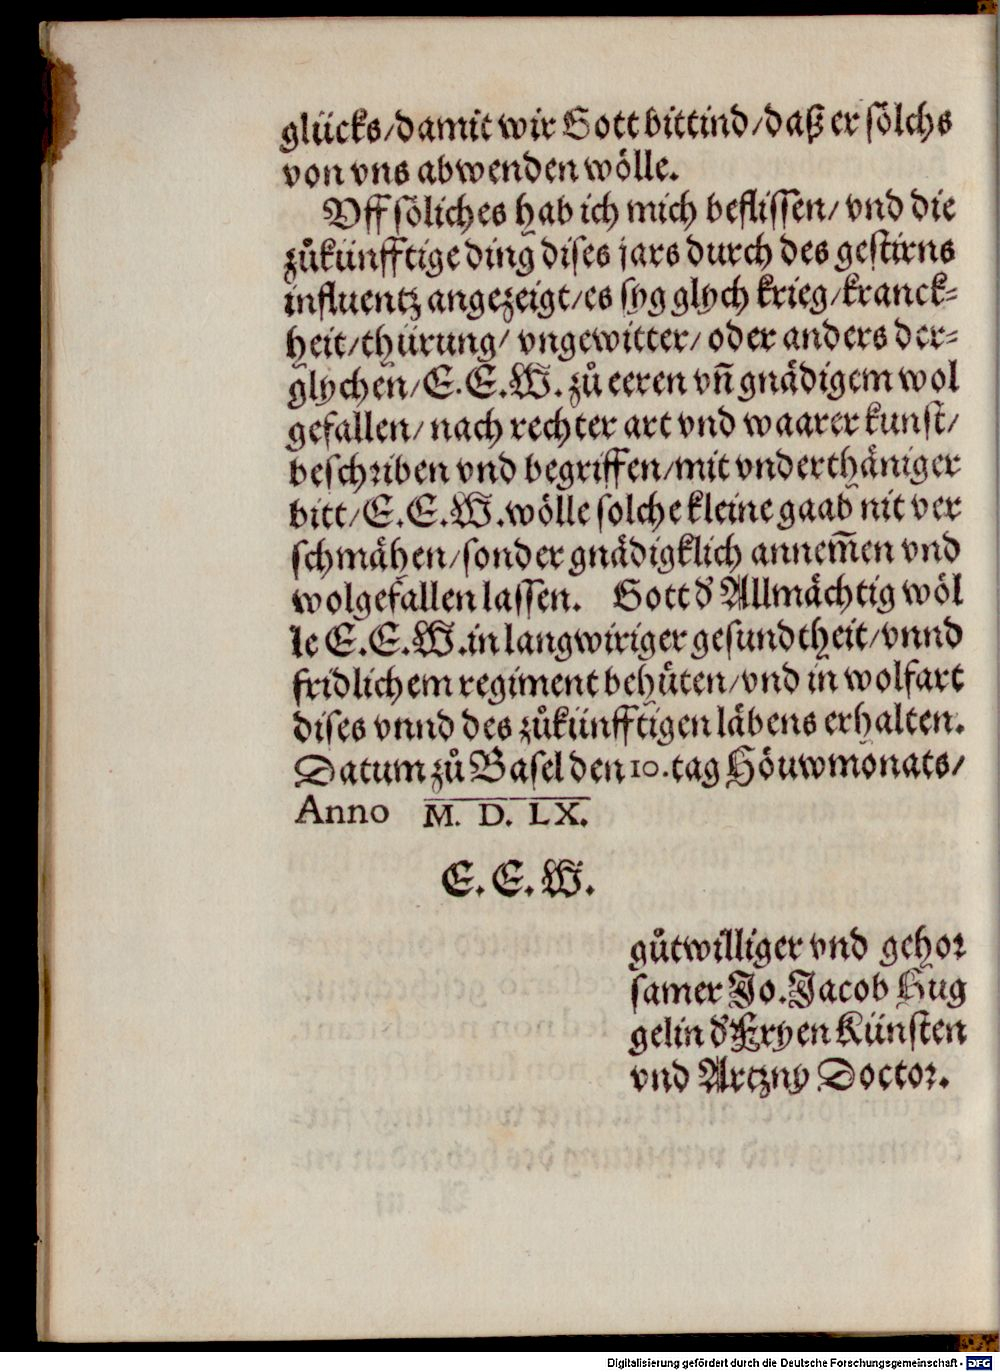 glücks/damit wir Gott bittind/daß er sölchs
von vns abwenden wölle.
Vff söliches hab ich mich beflissen/ vnd die
zůkünfftige ding dises jars durch des gestirns
influentz angezeigt/es syg glych krieg/kranck-
heit/thürung/ vngewitter/ oder anders der-
glychen/E.E.W. zů eeren vñ gnädigem wol
gefallen/ nach rechter art vnd waarer kunst/
beschriben vnd begriffen/mit vnderthäniger
bitt/E.E.W.wölle solche kleine gaab nit ver
schmähen/sonder gnädigklich annem̄en vnd
wolgefallen lassen. Gott d' Allmächtig wöl
le E.E.W.in langwiriger gesundtheit/vnnd
fridlichem regiment behüten/vnd in wolfart
dises vnnd des zůkünfftigen läbens erhalten.
Datum zů Basel den 10.tag Höuwmonats/
Anno M. D. LX.
E. E. W.
gůtwilliger vnd gehor
samer Jo.Jacob Hug
gelin d' Fryen Künsten
vnd Artzny Doctor.
Digitalisierung gefördert durch die Deutsche Forschungsgemeinschaft - DFG